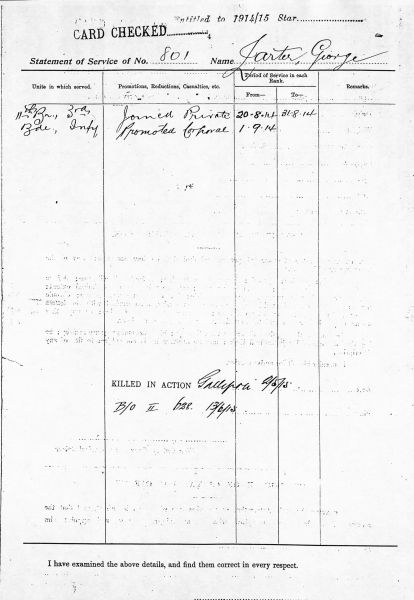 Entitled to 1914/15 Star
CARD CHECKED
Statement of Service of No. 801 Name Jarter, George
Units in which served. Promotions, Reductions, Casualties, etc. Period of Service in each Rank. Remarks.
From— To—
11th Bn, 3rd Joined Private 20-8-14 31-8-14
Bde, Infy Promoted Corporal 1.9.14
KILLED IN ACTION Gallipoli
B/O II 628. 13/6/15
I have examined the above details, and find them correct in every respect.